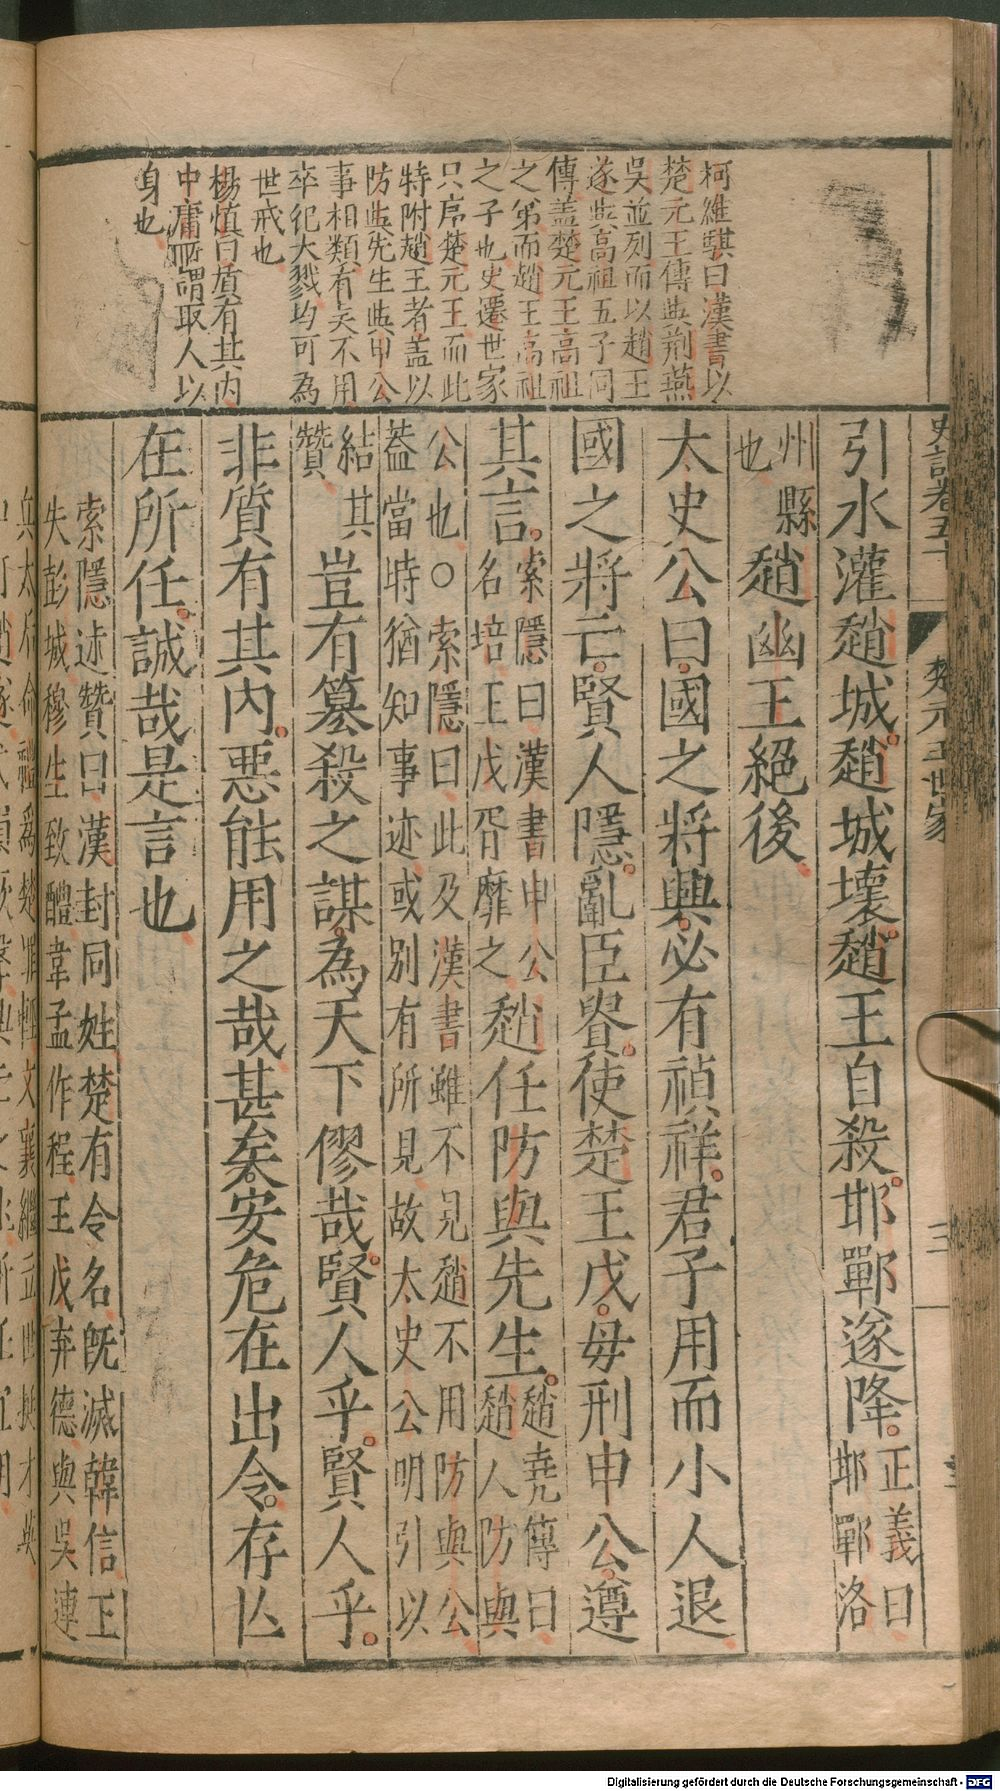 柯維騏曰漢書以
楚元王傳與荊燕
吳並列而以趙王
遂與高祖五子同
傳蓋楚元王高祖
之弟而趙王高祖
之子也史遷世家
只序楚元王而此
特附趙王者蓋以
防與先生與申公
事相類有矣不用
卒犯大戮均可為
世戒也
楊慎曰質有其內
中庸所謂取人以
身也
史記卷五十
楚元王世家
三
引水灌趙城趙城壞趙王自殺邯鄲遂降正義曰邯鄲洛
州縣也趙幽王絕後
太史公曰國之將興必有禎祥君子用而小人退
國之將亡賢人隱亂臣貴使楚王戊毋刑申公遵
其言索隱曰漢書申公名培王戊胥靡之趙任防與先生趙堯傳曰趙人防與
公也○索隱曰此及漢書雖不見趙不用防與公蓋當時猶知事迹或別有所見故太史公明引以
結其贊豈有篡殺之謀為天下僇哉賢人乎賢人乎
非質有其內惡能用之哉甚矣安危在出令存亾
在所任誠哉是言也
索隱述贊曰漢封同姓楚有令名既滅韓信王
失彭城穆生致醴韋孟作程王戊弃德與吳連
兵太后命禮為楚罪輕文襄繼立世挺才英
Digitalisierung gefördert durch die Deutsche Forschungsgemeinschaft - DFG